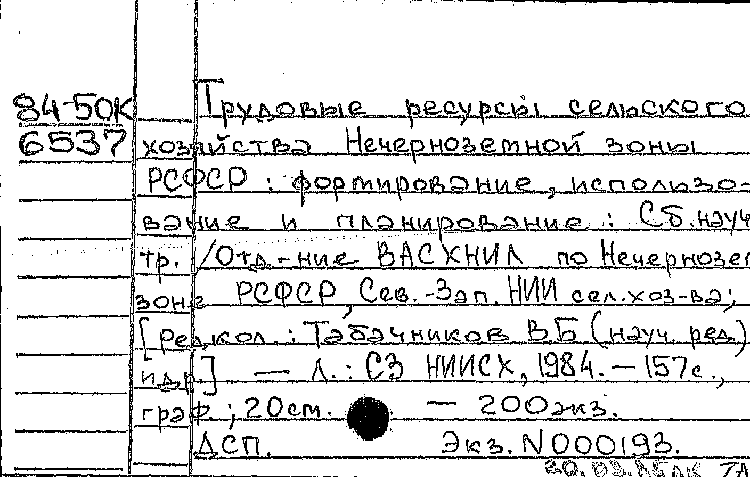 84-50К Трудовые ресурсы сельского
6537 хозяйства Нечерноземной зоны
РСФСР : формирование, использо-
вание и планирование : Сб. науч.
тр. /Отд-ние ВАСХНИЛ по Нечернозем
зоне РСФСР, Сев.-Зап. НИИ сел. хоз-ва;
[Редкол.: Табачников В.Б (науч. ред)
и др.] — Л.: СЗ НИИСХ, 1984. — 157с.,
граф.; 20см. — 200экз.
ДСП. Экз. N000193.